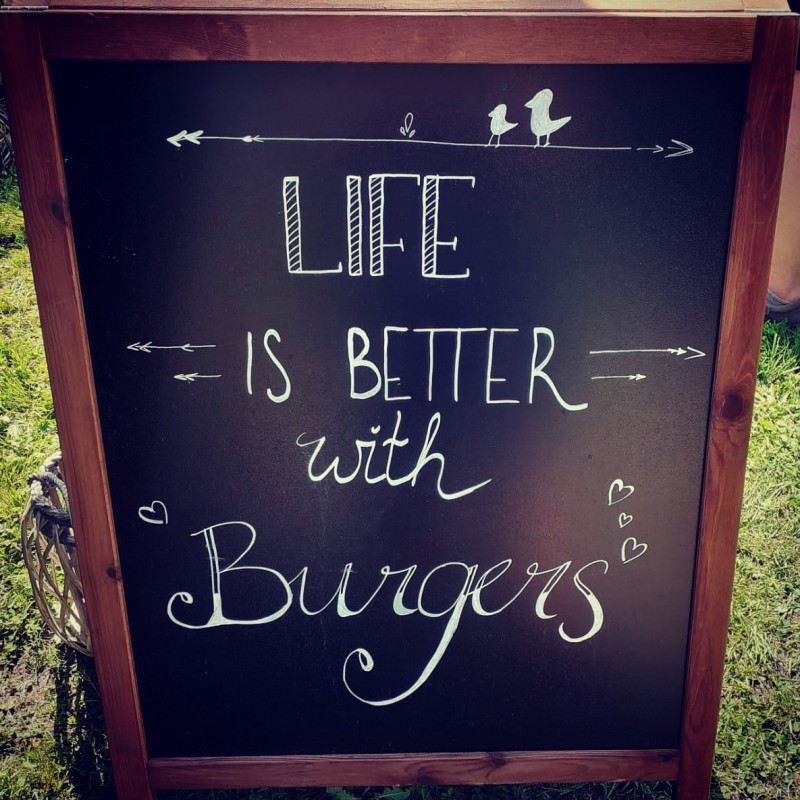 LIFE
IS BETTER
with
Burgers